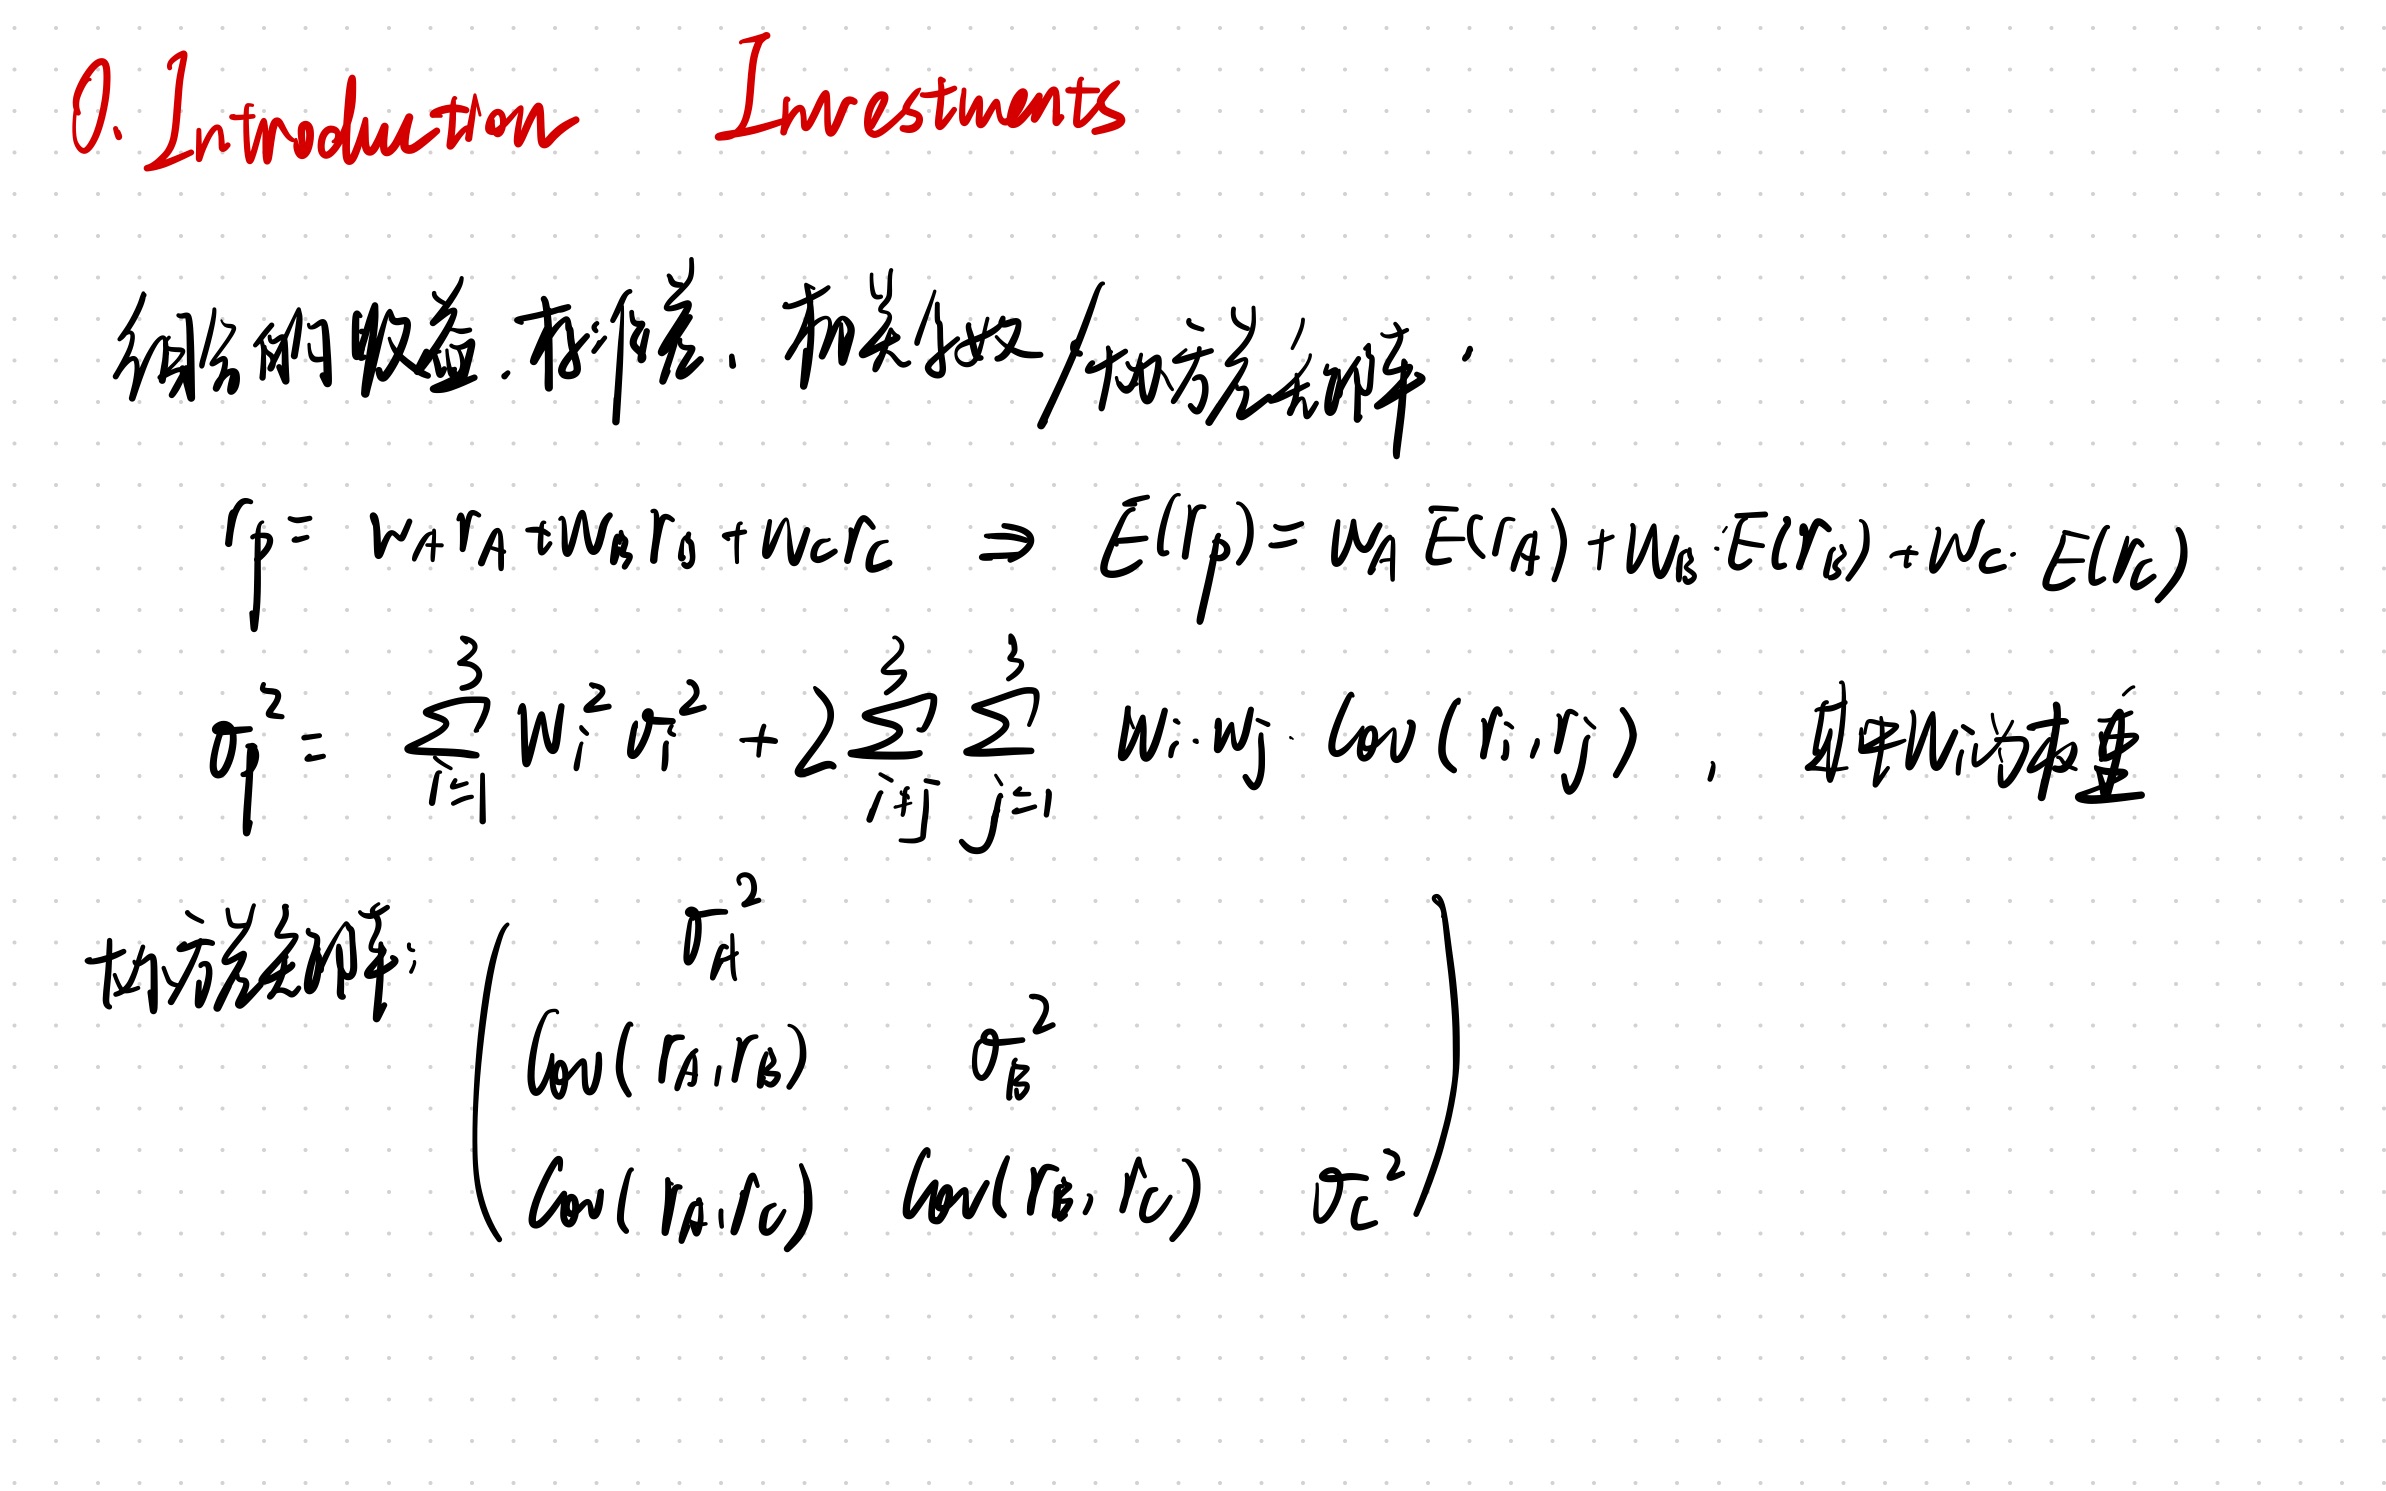 0. Introduction Investments
组合的收益.标准差.相关系数/协方差矩阵.
r_p = w_A r_A + w_B r_B + w_C r_C ⇒ E(r_p) = w_A E(r_A) + w_B·E(r_B) + w_C·E(r_C)
σ_p² = ∑_{i=1}^{3} w_i² σ_i² + 2∑_{i≠j}^{3} ∑_{j=1}^{3} w_i·w_j·Cov(r_i, r_j), 其中w_i为权重
协方差矩阵:
σ_A²
Cov(r_A, r_B) σ_B²
Cov(r_A, r_C) Cov(r_B, r_C) σ_C²